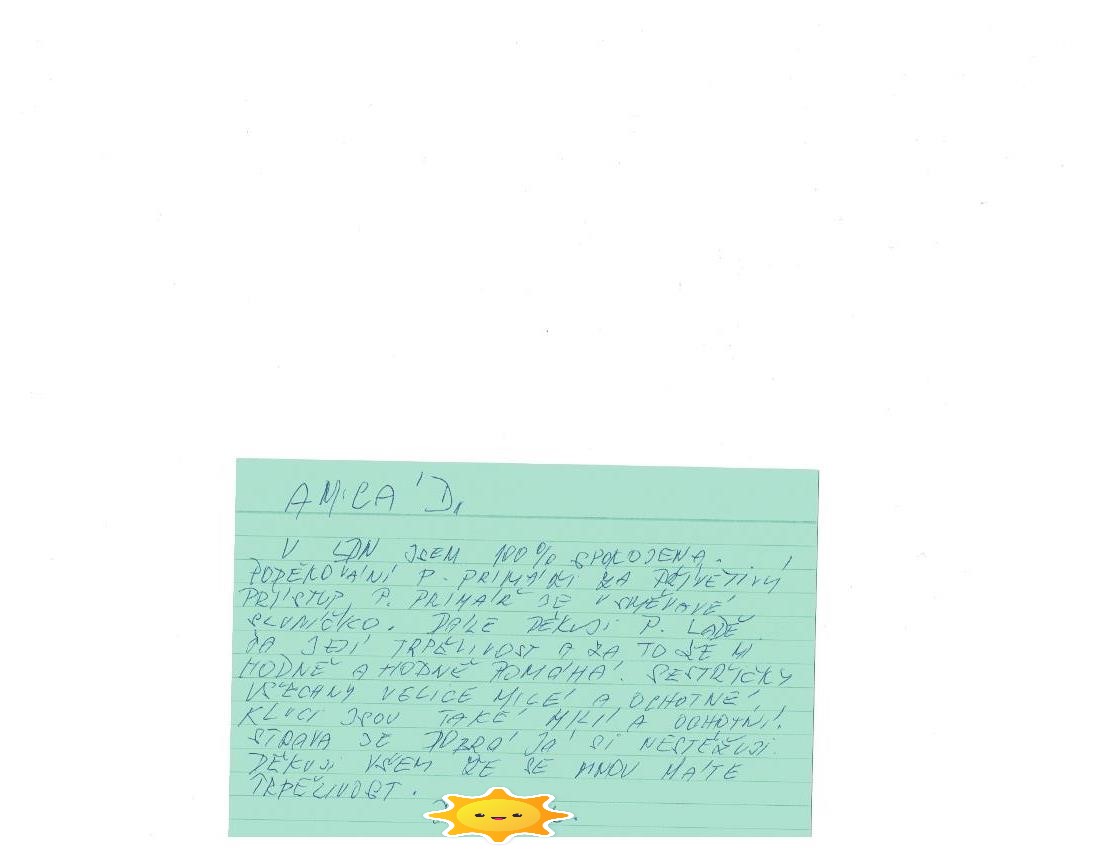 AMICA D,
V LDN JSEM 100% SPOKOJENA.
PODĚKOVÁNÍ P. PRIMÁŘI ZA PŘÍVĚTIVÝ
PŘÍSTUP, P. PRIMÁŘ JE USMĚVAVÉ
SLUNÍČKO. DÁLE DĚKUJI P. LADĚ
ZA JEJÍ TRPĚLIVOST A ZA TO ŽE MI
HODNĚ A HODNĚ POMÁHÁ. SESTŘIČKY
VŠECHNY VELICE MILÉ A OCHOTNÉ,
KLUCI JSOU TAKÉ MILÍ A OCHOTNÍ.
STRAVA JE DOBRÁ JÁ SI NESTĚŽUJI.
DĚKUJI VŠEM ŽE SE MNOU MÁTE
TRPĚLIVOST.